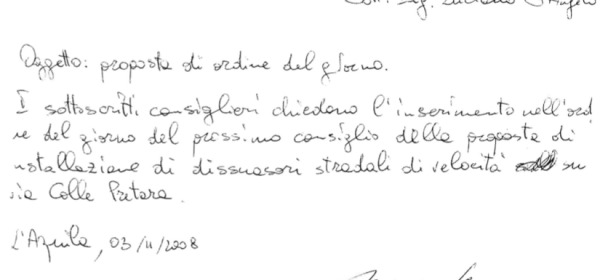 Sig. Luciano D'Angelo
Oggetto: proposta di ordine del giorno.
I sottoscritti consiglieri chiedono l'inserimento nell'ord
ne del giorno del prossimo consiglio della proposta di
nstallazione di dissuasori stradali di velocità su
via Colle Pretara.
L'Aquila, 03/11/2008